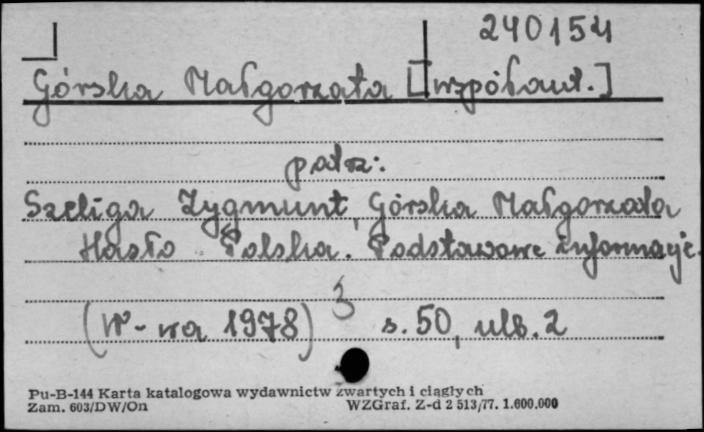 240154
Górska Małgorzata [współaut.]
patrz:
Szeliga Zygmunt, Górska Małgorzata
Hasło : Polska. Podstawowe informacje.
3
(W-wa 1978) s. 50, nlb. 2
Pu-B-144 Karta katalogowa wydawnictw zwartych i ciągłych
Zam. 603/DW/On WZGraf. Z-d 2 513/77. 1.600.000